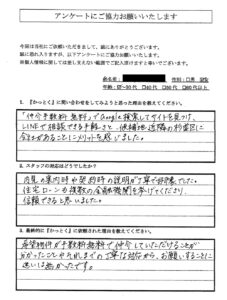 アンケートにご協力お願いいたします
今回は当社にご依頼いただきまして、誠にありがとうございます。
誠に恐れ入りますが、以下アンケートにご協力お願いいたします。
※個人情報に関しては差し支えない範囲でご記入頂けますと幸いでございます。
お名前： 性別：□男 女
年齢：□～30代 □40代 □50代 □60代以上
1. 『かっとく』に問い合わせをしてみようと思った理由を教えてください。
「仲介手数料 無料」でGoogle検索してサイトを見つけ、
LINEで相談できる手軽さと、候補地近隣の杉並区に
会社があることにメリットを感じました。
2. スタッフの対応はどうでしたか？
内見の案内時や契約時の説明が丁寧で好印象でした。
住宅ローンも複数の金融機関を挙げてくださり、
信頼できると思いました。
3. 最終的に『かっとく』に依頼された理由を教えてください。
希望物件が手数料無料で仲介していただけることが
分かったことやそれまでのご丁寧な対応から、お願いすることに
迷いは無かったです。